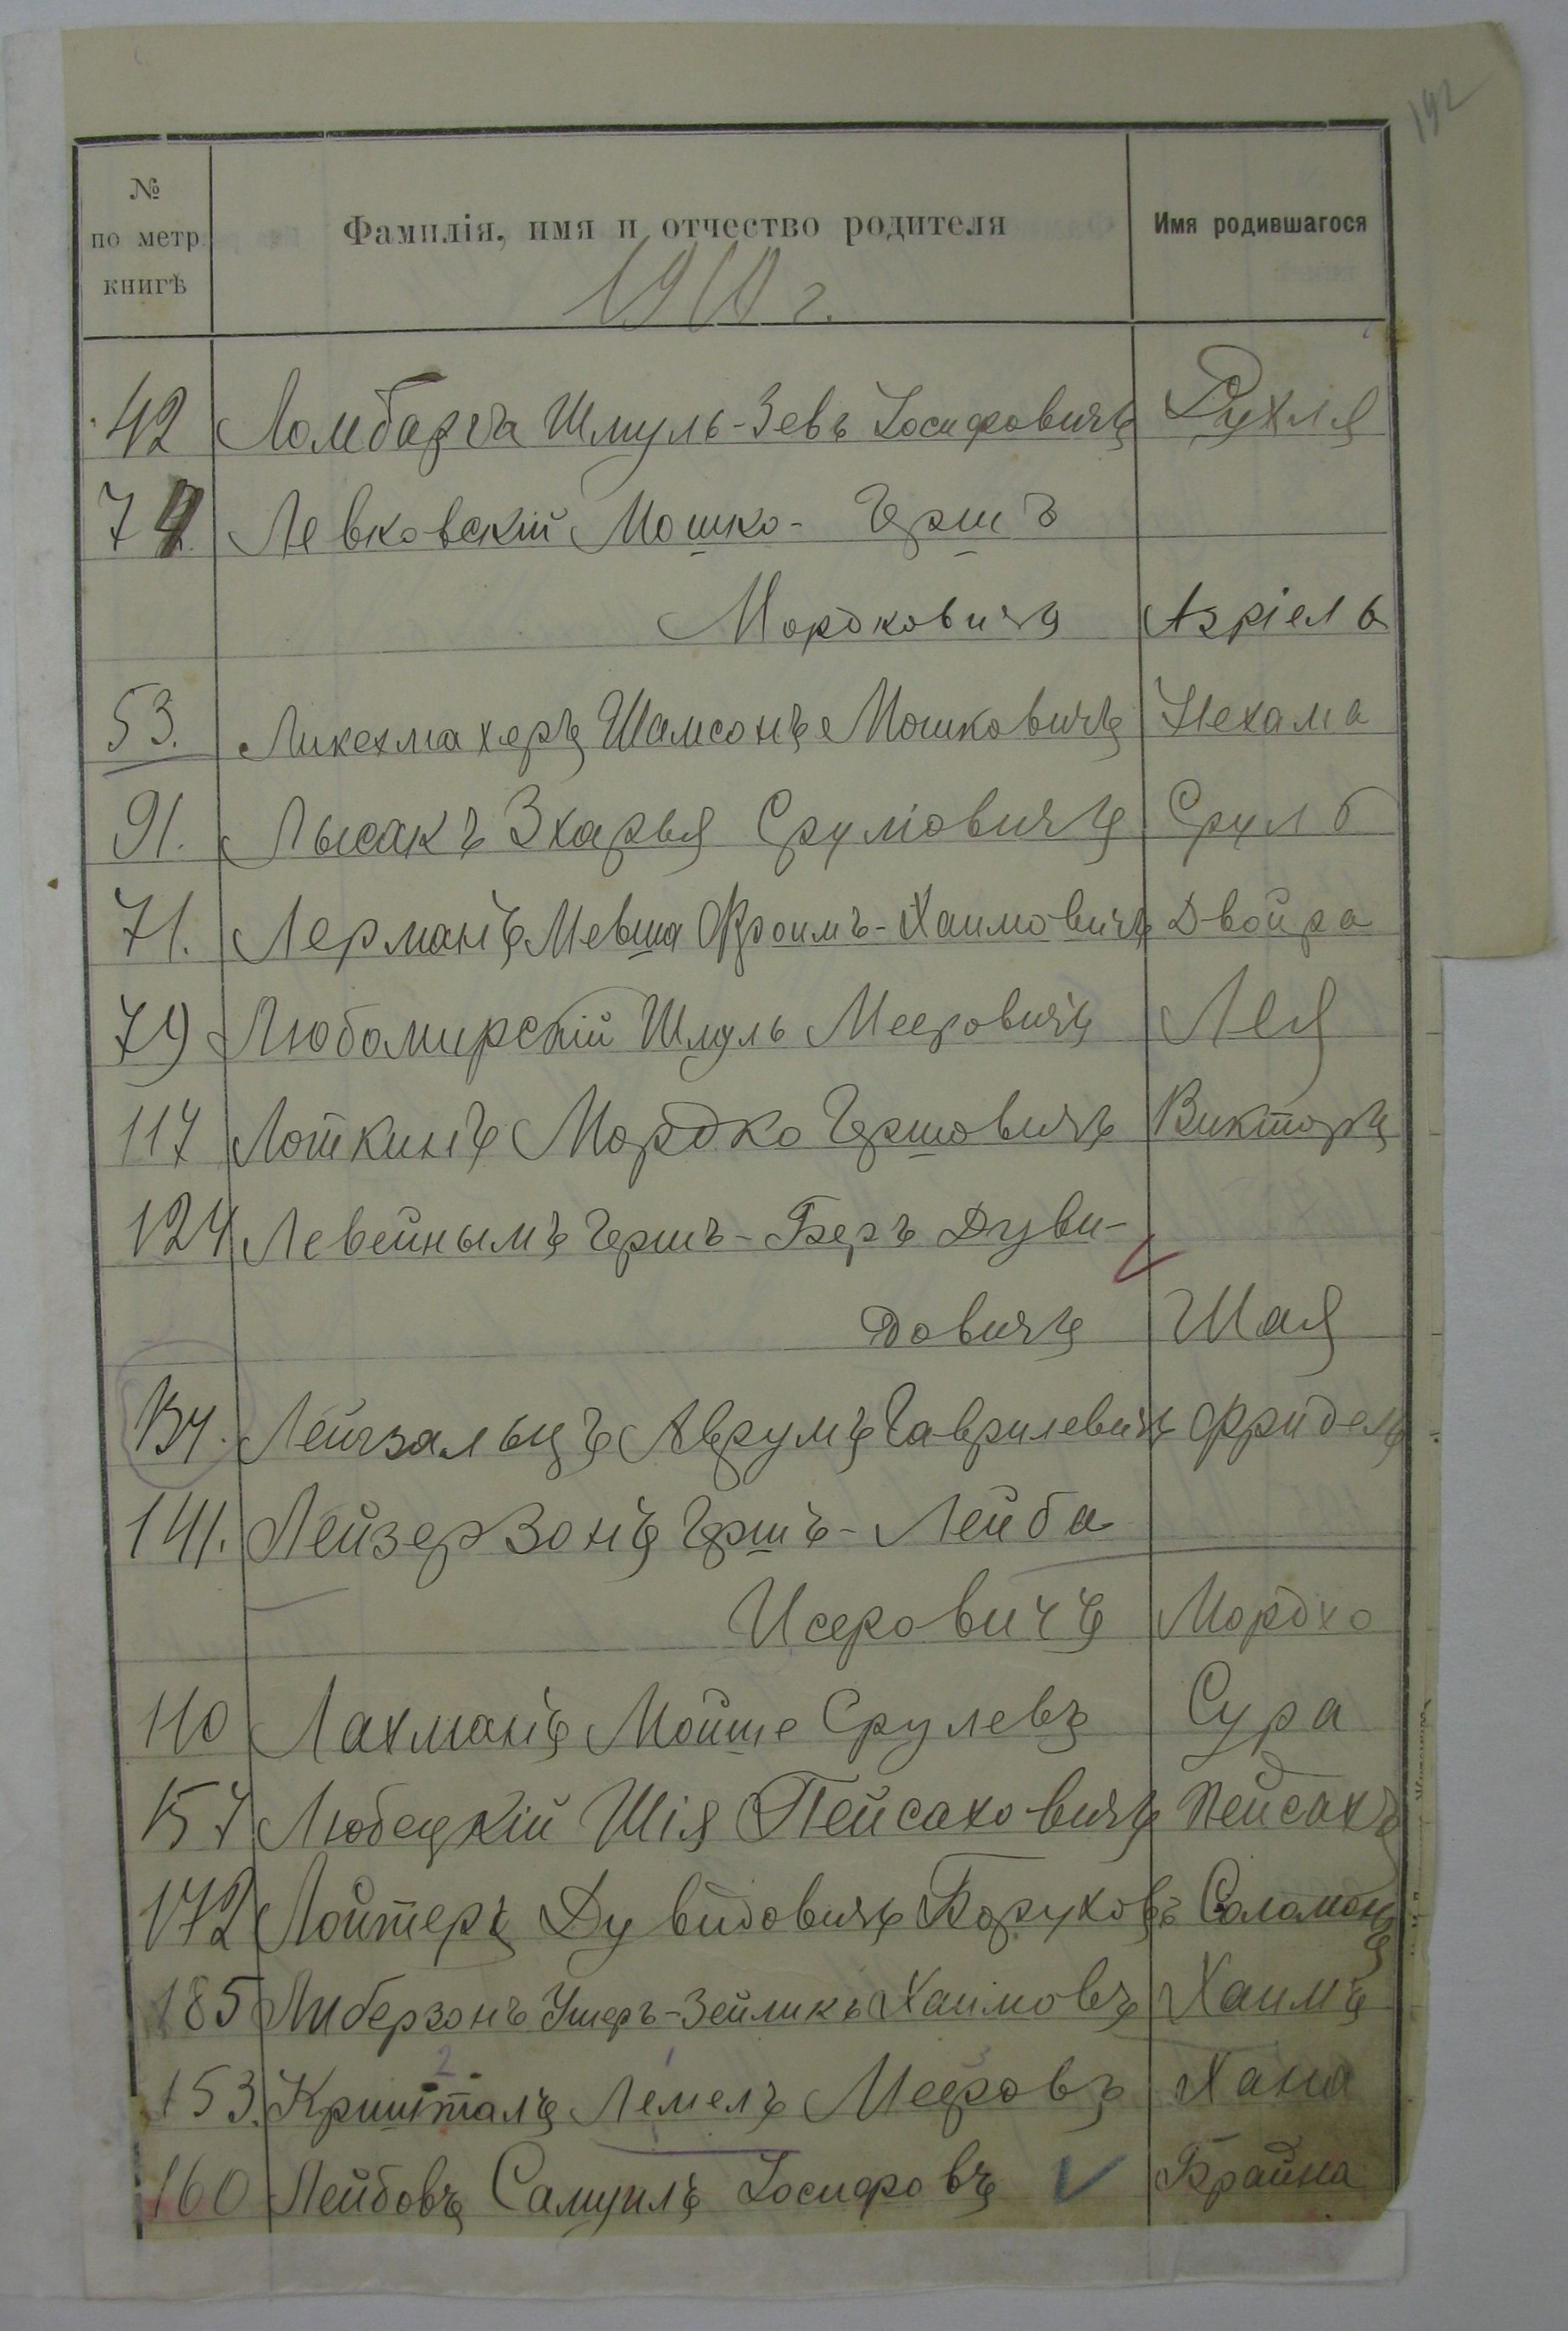 192
№ по метр. книгѣ
Фамилія, имя и отчество родителя
Имя родившагося
1910 г.
42 Ломбарга Шмуль-Зевъ Іосифовичъ Рухля
74 Левковскій Мошко-Гершъ
Мордковичъ Азріель
53. Шамсонъ Мошковичъ Нехама
91. Лысакъ Зхарья Сруловичъ Сруль
71. Лерманъ Мевша Фроимъ-Хаимовичъ Двойра
79 Любомирскій Шмуль Мееровичъ Лея
117 Лоткинъ Мордко Гершовичъ Викторъ
124 Левейнымъ Гершъ-Беръ Дуви-
довичъ Шая
134. Аврумъ Гаврилевичъ Фридель
141. Лейзерзонъ Гершъ-Лейба
Исеровичъ Мордко
110 Лахманъ Мойше Срулевъ Сура
157 Любецкій Шія Пейсаховичъ Пейсахъ
172 Лойтеръ Дувидовичъ Боруховъ Соломонъ
185 Либерзонъ Ушеръ-Зейликъ Хаимовъ Хаимъ
2 1 3
153. Кришталъ Лемелъ Мееровъ Хана
160 Лейбовъ Самуилъ Іосифовъ Брайна